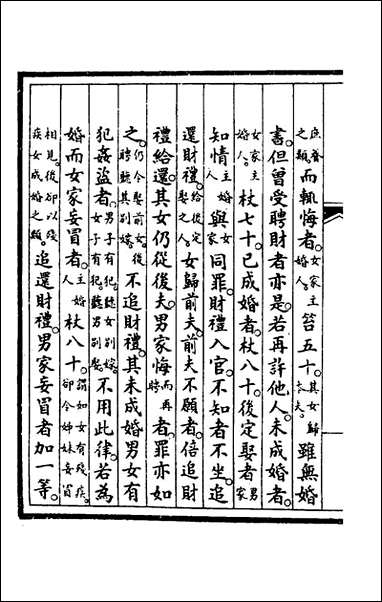 庶養之類而輒悔者。女家主婚人。笞五十。其女歸本夫。雖無婚
書。但曾受聘財者亦是。若再許他人。未成婚者。
女家主婚人。杖七十。已成婚者。杖八十。後定娶者男家
知情。主婚人與女家同罪。財禮入官。不知者不坐。追
還財禮。給後定娶之人。女歸前夫。前夫不願者。倍追財
禮給還。其女仍從後夫。男家悔而再聘者。罪亦如
之。仍令娶前女。後聘聽其別嫁。不追財禮。其未成婚男女有
犯姦盜者。男子有犯。聽女別嫁。女子有犯。聽男別娶。不用此律。若為
婚而女家妄冒者。主婚人杖八十。謂如女有殘疾。卻令姊妹妄冒
相見。後卻以殘疾女成婚之類。追還財禮。男家妄冒者。加一等。